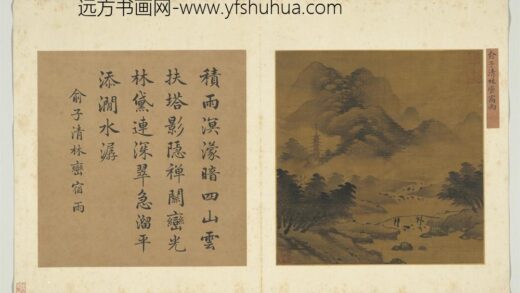 远方书画网-www.yfshuhua.com
積雨溟濛暗四山雲
扶塔影隱禅關巒光
林黛連深翠急溜平
添澗水潺
俞子清林巒宿雨
俞子清林巒宿雨